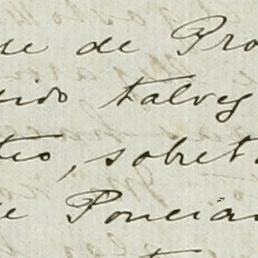 ue de Pro
dido talvez
teo, sobret
e Poncian